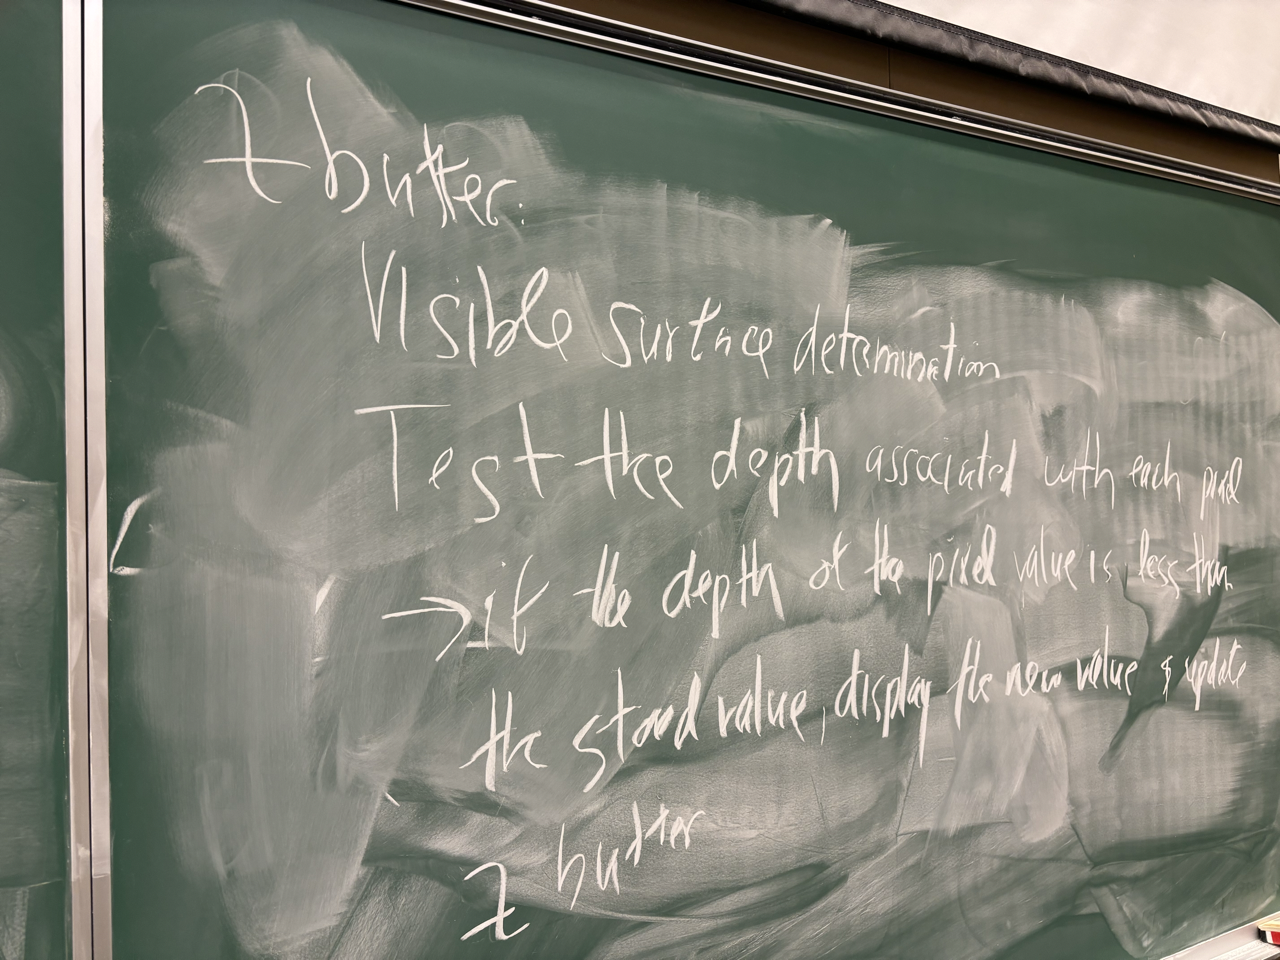 Z buffer:
Visible surface determination
Test the depth associated with each pixel
→ if the depth of the pixel value is less than
the stored value, display the new value & update
Z buffer